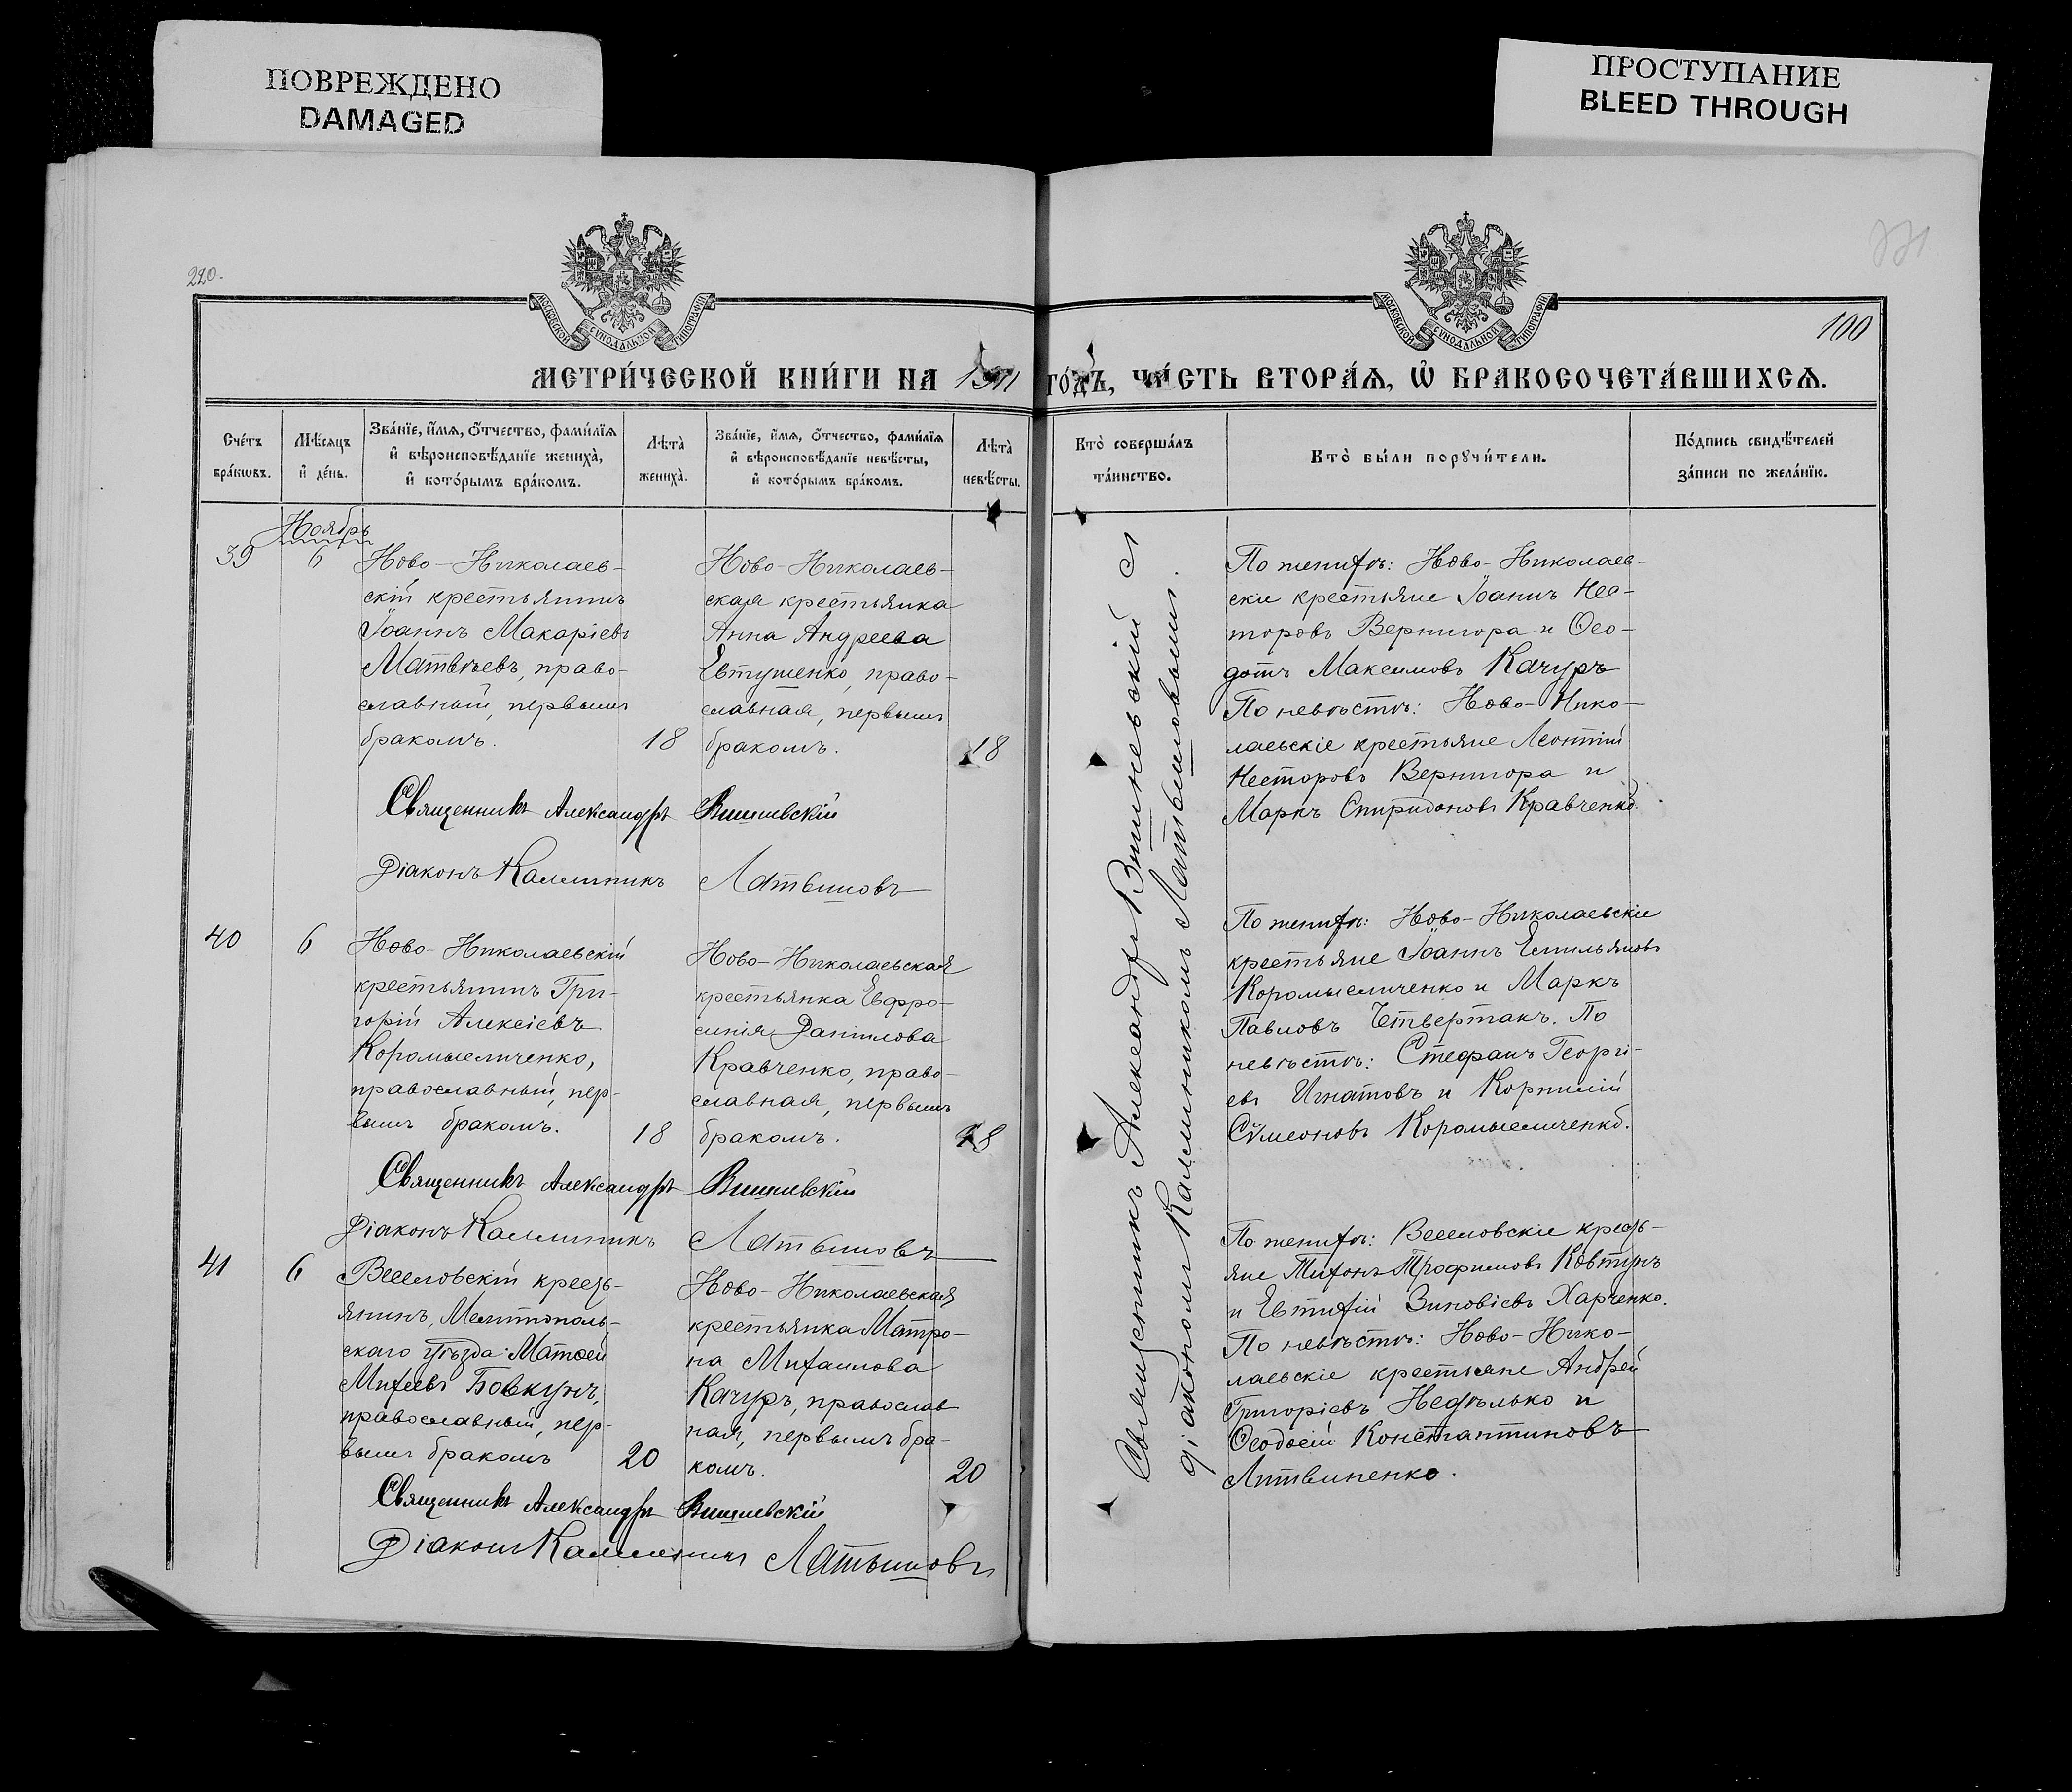 ПОВРЕЖДЕНО
DAMAGED
ПРОСТУПАНИЕ
BLEED THROUGH
220.
МОСКОВСКОЙ СУНОДАЛЬНОЙ ТИПОГРАФІИ
МОСКОВСКОЙ СУНОДАЛЬНОЙ ТИПОГРАФІИ
100
МЕТРИ́ЧЕСКОЙ КНИ́ГИ НА 1911 ГО́ДЪ, ЧА́СТЬ ВТОРА́Ѧ, Ѡ БРАКОСОЧЕТА́ВШИХСѦ.
Сче́тъ бра́кѡвъ.
Мѣ́сѧцъ и҆ де́нь.
Зва́нїе, и҆́мѧ, ѻ҆́тчество, фами́лїѧ и҆ вѣроисповѣ́данїе жениха̀, и҆ кото́рымъ бра́комъ.
Лѣ́та̀ жениха̀.
Зва́нїе, и҆́мѧ, ѻ҆́тчество, фами́лїѧ и҆ вѣроисповѣ́данїе невѣ́сты, и҆ кото́рымъ бра́комъ.
Лѣ́та̀ невѣ́сты.
Кто̀ соверша́лъ та́инство.
Кто̀ бы́ли порꙋчи́тели.
По́дпись свидѣ́телей за́писи по жела́нїю.
Ноябрь
39
6
Ново-Николаев-
скій крестьянинъ
Іоаннъ Макаріевъ
Матвѣевъ, право-
славный, первымъ
бракомъ.
18
Ново-Николаев-
ская крестьянка
Анна Андреева
Евтушенко, право-
славная, первымъ
бракомъ.
18
Священникъ Александръ Вишневскій
Діаконъ Каллиникъ Латвиновъ
По женихѣ: Ново-Николаев-
скіе крестьяне Іоаннъ Нес-
торовъ Вернигора и Ѳео-
дотъ Максимовъ Качуръ
По невѣстѣ: Ново-Нико-
лаевскіе крестьяне Леонтій
Несторовъ Вернигора и
Маркъ Спиридоновъ Кравченко.
40
6
Ново-Николаевскій
крестьянинъ Гри-
горій Алексіевъ
Коромысличенко,
православный, пер-
вымъ бракомъ.
18
Ново-Николаевская
крестьянка Евфро-
синія Даніилова
Кравченко, право-
славная, первымъ
бракомъ.
18
Священникъ Александръ Вишневскій
Діаконъ Каллиникъ Латвиновъ
По женихѣ: Ново-Николаевскіе
крестьяне Іоаннъ Емильяновъ
Коромысличенко и Маркъ
Павловъ Четвертакъ. По
невѣстѣ: Стефанъ Георгі-
евъ Игнатовъ и Корнилій
Сѵмеоновъ Коромысличенко.
41
6
Веселовскій кресть-
янинъ, Мелитополь-
скаго уѣзда Матѳей
Михеевъ Бовкунъ,
православный, пер-
вымъ бракомъ
20
Ново-Николаевская
крестьянка Матро-
на Михаилова
Качуръ, православ
ная, первымъ бра-
комъ.
20
Священникъ Александръ Вишневскій
Діаконъ Каллиникъ Латвиновъ
По женихѣ: Веселовскіе кресть-
яне Тихонъ Трофимовъ Ковтунъ
и Евтихій Зиновіевъ Харченко.
По невѣстѣ: Ново-Нико-
лаевскіе крестьяне Андрей
Григоріевъ Недѣлько и
Ѳеодосій Константиновъ
Литвиненко.
Священникъ Александръ Вишневскій съ
діакономъ Каллиникомъ Латвиновымъ.